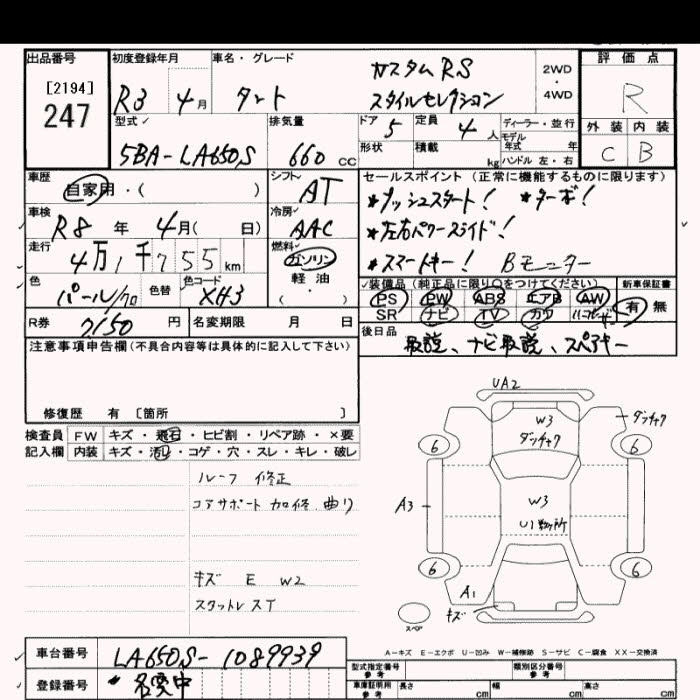 出品番号
[2194]
247
初度登録年月
R3 4 月
車名・グレード
タント
カスタムRS
スタイルセレクション
2WD
・
4WD
評価点
R
外装 内装
C B
型式
5BA-LA650S
排気量
660 CC
ドア 5
定員 4 人
形状
積載 kg
ディーラー・並行
モデル
年式 年
ハンドル 左・右
車歴
自家用・( )
シフト
AT
車検
R8 年 4月( 日)
冷房
AAC
走行
4万1千755 km
燃料
ガソリン
・
軽油
( )
色
パール/クロ
色替
色コード
XH3
R券
7150 円
名変期限 月 日
セールスポイント (正常に機能するものに限ります)
*プッシュスタート! *ターボ!
*左右パワースライド!
*スマートキー! Bモニター
装備品(純正品に限り○をつけてください)
新車保証書
PS PW ABS エアB AW
SR ナビ TV カワ
有 無
後日品
取説、ナビ取説、スペアキー
注意事項申告欄(不具合内容等は具体的に記入して下さい)
修復歴 有 [箇所 ]
検査員
記入欄
FW キズ・飛石・ヒビ割・リペア跡・×要
内装 キズ・汚れ・コゲ・穴・スレ・キレ・破レ
ルーフ 修正
コアサポート 加修 曲り
キズ E W2
UA2
W3
ダッチャク
ダッチャク
6 6
A3
W3
U1数ヶ所
6 6
A1
キズ
スペア
A-キズ E-エクボ U-凹み W-補修跡 S-サビ C-腐食 XX-交換済
車台番号
LA650S-1089939
登録番号
*名変中
型式指定番号
参考
類別区分番号
参考
車庫証明用
参考
長さ cm
幅 cm
高さ cm